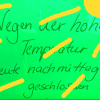 Wegen der hohen
Temperatur
heute nachmittag
geschlossen